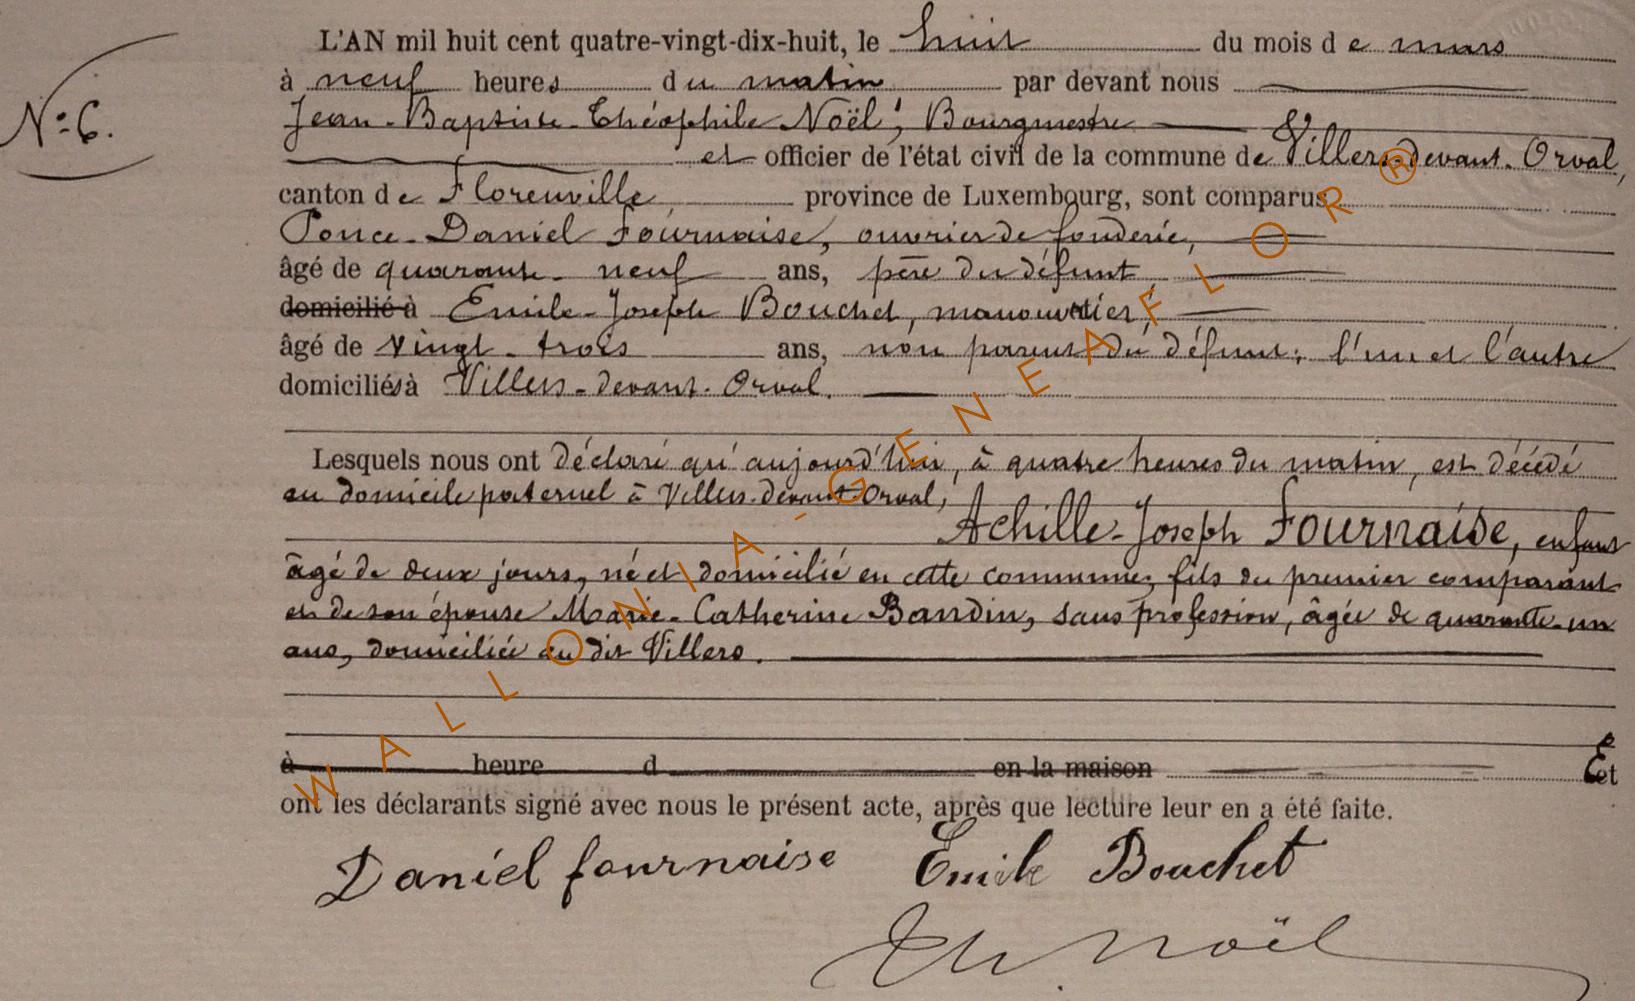 L'AN mil huit cent quatre-vingt-dix-huit, le huit du mois de mars
à neuf heures du matin par devant nous
N° 6.
Jean-Baptiste-Théophile Noël, Bourgmestre
et officier de l'état civil de la commune de Villers-devant-Orval,
canton de Florenville province de Luxembourg, sont comparus
Ponce-Daniel Fournaise, ouvrier de fonderie,
âgé de quarante-neuf ans, père du défunt
domicilié à Emile-Joseph Bouchet, manouvrier,
âgé de vingt-trois ans, non parent du défunt; l'un et l'autre
domiciliés à Villers-devant-Orval.
Lesquels nous ont déclaré qu'aujourd'hui, à quatre heures du matin, est décédé
au domicile paternel à Villers-devant-Orval,
Achille-Joseph Fournaise, enfant
âgé de deux jours, né et domicilié en cette commune, fils du premier comparant
et de son épouse Marie-Catherine Bandin, sans profession, âgée de quarante-un
ans, domiciliée au dit Villers.
à heure d en la maison Et
ont les déclarants signé avec nous le présent acte, après que lecture leur en a été faite.
Daniel fournaise Emile Bouchet
Th Noël
WALLONIA-GENEAFLOR®